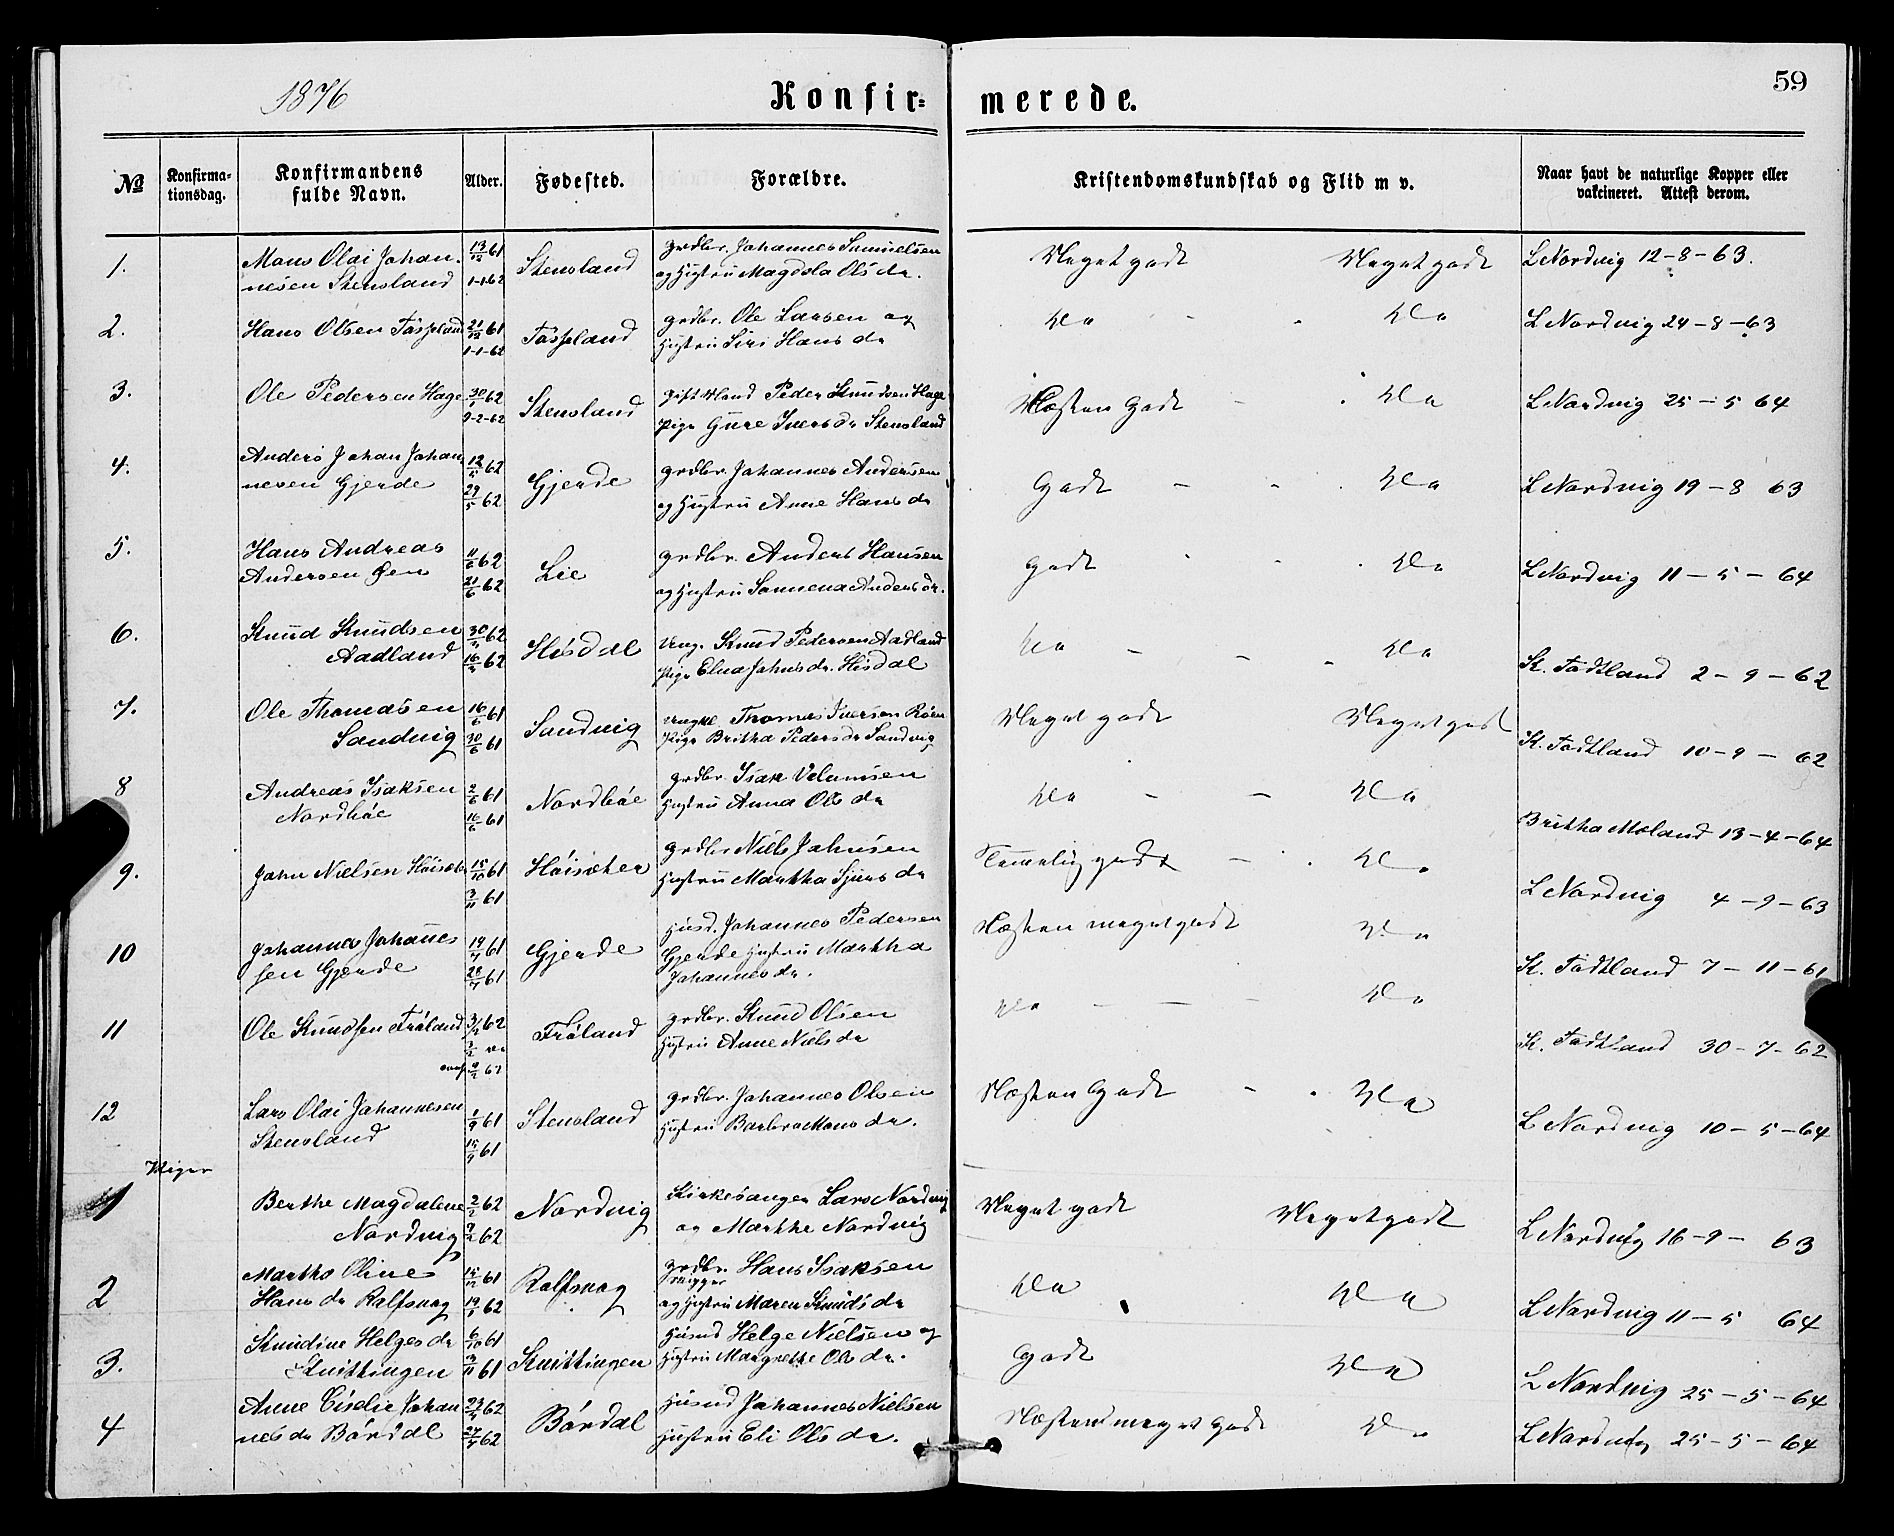 1876
Konfir= merede.
59
No
Konfirma-
tionsdag.
Konfirmandens
fulde Navn.
Alder.
Fødested.
Forældre.
Kristendomskundskab og Flid m v.
Naar havt de naturlige Kopper eller
vakcineret. Attest derom.
1. Mons Olai Johan- 13/12 61 Stensland grdbr. Johannes Samuelsen Meget godt Meget godt L Nordvig 12-8-63.
nesen Stensland 1-1-62 og Hustru Magdela Olsdr.
2. Hans Olsen Tössland 21/12 61 Tössland grdbr. Ole Larsen og do do L Nordvig 24-8-63
1-1-62 Hustru Siri Hansdr
3. Ole Pedersen Hage 30/1 62 Stensland gift Mand Peder Knudsen Hage Næsten Godt do L Nordvig 25-5 64
9-2-62 Pige Gure Iversdr Stensland
4. Anders Johan Johan- 12/5 62 Gjerde grdbr. Johannes Andersen Godt do L Nordvig 19-8 63
nesen Gjerde 29/5 62 og Hustru Anne Hansdr
5. Hans Andreas 11/6 62 Lie grdbr. Anders Hansen godt do L Nordvig 11-5-64
Andersen Øen 21/6 62 og Hustru Andersdr.
6. Knud Knudsen 30/3 62 Hisdal Ung. Knud Pedersen Aadland do do K. Tødtland 2-9-62
Aadland 62 Pige Johnsdr. Hisdal
7. Ole Thomassen 16/6 61 Sandvig Ungkl Thomas Iversen Meget godt Meget godt K. Tødtland 10-9-62
Sandvig 30/6 61 Pige Britha Pedersdr Sandvig
8 Andreas Isaksen 2/6 61 Nordbøe grdbr. Isak Velumsen do do Britha Moland 13-4-64
Nordbøe 16/6 61 Hustru Anna Olsdr
9. John Nielsen Höisæter 15/10 61 Höisæter grdbr Niels Johnsen Temmelig godt do L Nordvig 4-9-63
3/11 61 Hustru Martha Sjursdr
10 Johannes Johannes 14/7 61 Gjerde Husd. Johannes Pedersen Næsten meget godt do K. Tødtland 7-11-61
sen Gjerde 28/7 61 Gjerde Hustru Martha
Johannesdr.
11 Ole Knudsen Frøland 62 Frøland grdbr. Knud Olsen do do K. Tødtland 30-7-62
Hustru Anne Nielsdr
12 Lars Olai Johannesen 1/9 61 Stensland grdbr. Johannes Olsen Næsten Godt do L Nordvig 10-5-64
Stensland 15/9 61 Hustru Barbra Monsdr.
Piger
1 Berthe Magdalene 2/2 62 Nordvig Kirkesanger Lars Nordvig Meget godt Meget godt L Nordvig 16-9-63
Nordvig 9/2 62 og Marthe Nordvig
2 Martha Oline 15/12 61 Rolfsvog grdbr. Hans Isaksen do do L Nordvig 11-5 64
Hansdr Rolfsvog 19/1 62 og Hustru Maren Knudsdr
3. Knudine Helgesdr 6/10 61 Knittingen Husmd Helge Nielsen og Godt do L Nordvig 25-5-64
Knittingen 3/11 61 Hustru Margrethe Olsdr.
4 Anne Cisilie Johan 23/4 62 Børdal Husmd Johannes Nielsen Næsten meget godt do L Nordvig 25-5-64
nesdr Børdal 27/4 62 Hustru Eli Olsdr.